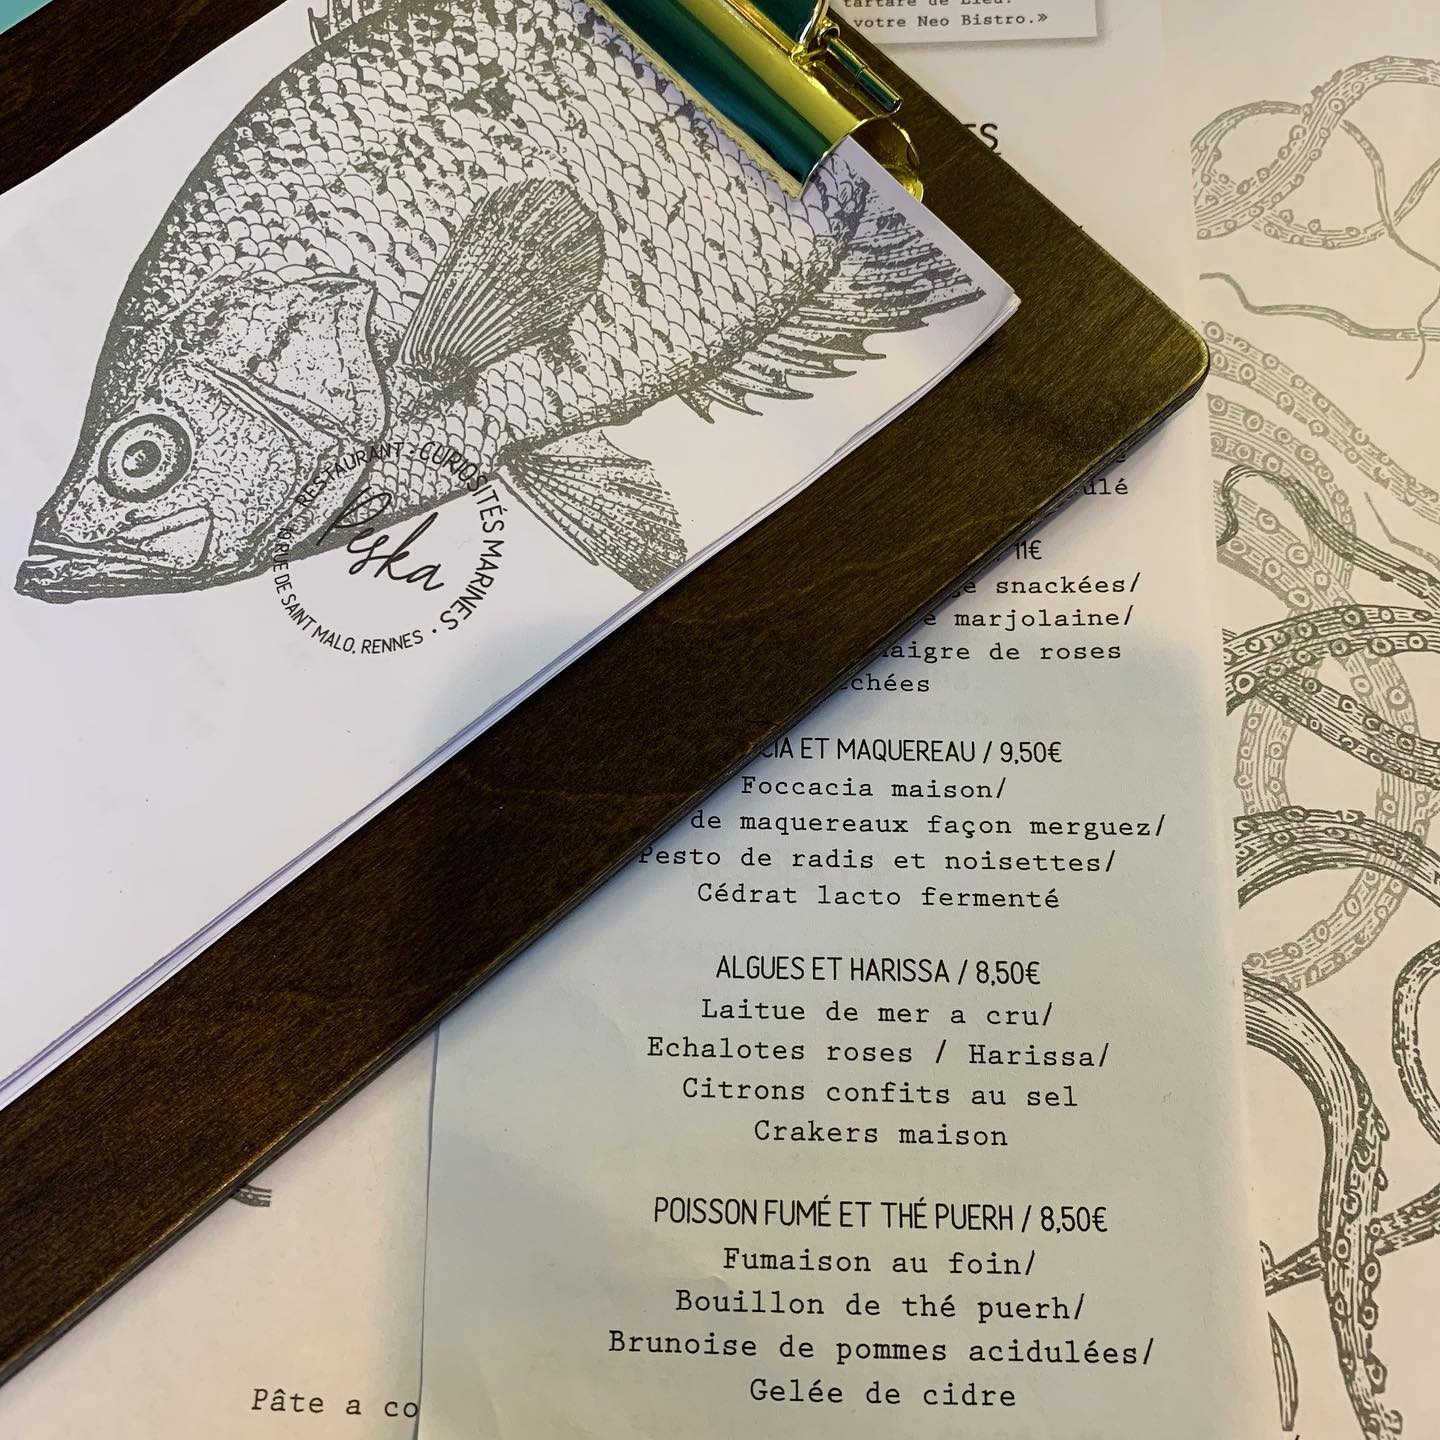 tartare de Lieu.
votre Neo Bistro.»
RESTAURANT : CURIOSITÉS MARINES •
Peska
RUE DE SAINT MALO, RENNES
11€
snackées/
marjolaine/
de roses
ET MAQUEREAU / 9,50€
Foccacia maison/
de maquereaux façon merguez/
Pesto de radis et noisettes/
Cédrat lacto fermenté
ALGUES ET HARISSA / 8,50€
Laitue de mer a cru/
Echalotes roses / Harissa/
Citrons confits au sel
Crakers maison
POISSON FUMÉ ET THÉ PUERH / 8,50€
Fumaison au foin/
Bouillon de thé puerh/
Brunoise de pommes acidulées/
Gelée de cidre
Pâte a co